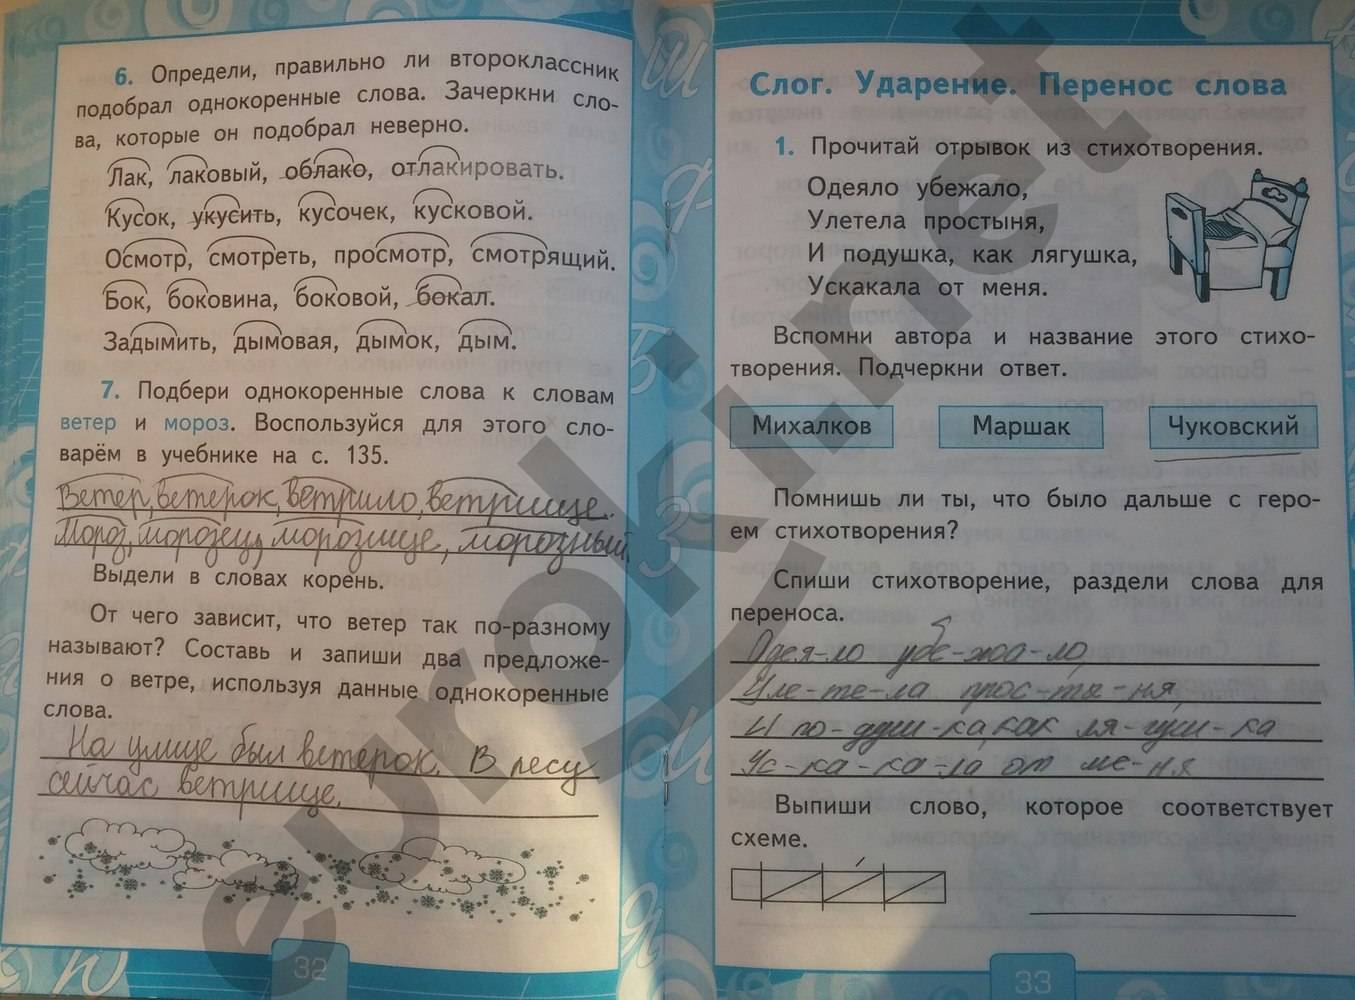 6. Определи, правильно ли второклассник
подобрал однокоренные слова. Зачеркни сло-
ва, которые он подобрал неверно.
Лак, лаковый, облако, отлакировать.
Кусок, укусить, кусочек, кусковой.
Осмотр, смотреть, просмотр, смотрящий.
Бок, боковина, боковой, бокал.
Задымить, дымовая, дымок, дым.
7. Подбери однокоренные слова к словам
ветер и мороз. Воспользуйся для этого сло-
варём в учебнике на с. 135.
Ветер, ветерок, ветрило, ветрище.
Мороз, морозец, морозище, морозный
Выдели в словах корень.
От чего зависит, что ветер так по-разному
называют? Составь и запиши два предложе-
ния о ветре, используя данные однокоренные
слова.
На улице был ветерок. В лесу
сейчас ветрище.
32
Слог. Ударение. Перенос слова
1. Прочитай отрывок из стихотворения.
Одеяло убежало,
Улетела простыня,
И подушка, как лягушка,
Ускакала от меня.
Вспомни автора и название этого стихо-
творения. Подчеркни ответ.
Михалков Маршак Чуковский
Помнишь ли ты, что было дальше с геро-
ем стихотворения?
Спиши стихотворение, раздели слова для
переноса.
Одея-ло убе-жа-ло,
Уле-те-ла прос-ты-ня,
И по-душ-ка, как ля-гуш-ка
Ус-ка-ка-ла от ме-ня
Выпиши слово, которое соответствует
схеме.
33
euroki.net